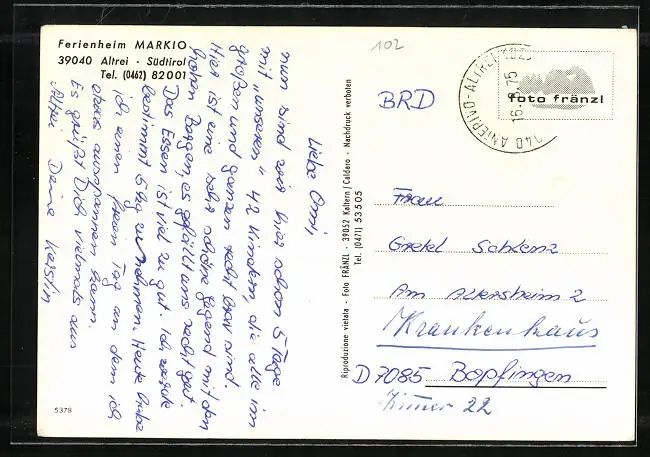 Ferienheim MARKIO
39040 Altrei · Südtirol
Tel. (0462) 82001
Liebe Omi,
nun sind wir hier schon 5 Tage
mit "unseren" 42 Kindern, die alle im
großen und ganzen recht brav sind.
Hier ist eine sehr schöne Gegend mit den
hohen Bergen, es gefällt uns recht gut.
Das Essen ist viel zu gut. Ich werde
bestimmt 5 kg zunehmen. Heute habe
ich einen freien Tag an dem ich
etwas ausspannen kann.
Es grüßt Dich vielmals aus
Altrei Deine Kerstin
5378
Riproduzione vietata - Foto FRÄNZL - 39052 Kaltern/Caldaro - Nachdruck verboten
Tel. (0471) 53505
102
BRD
ANTERIVO-ALTREI
16.8.75
foto fränzl
Frau
Gretel Schlenz
Am Alersheim 2
Krankenhaus
D 7085 Bopfingen
Zimmer 22